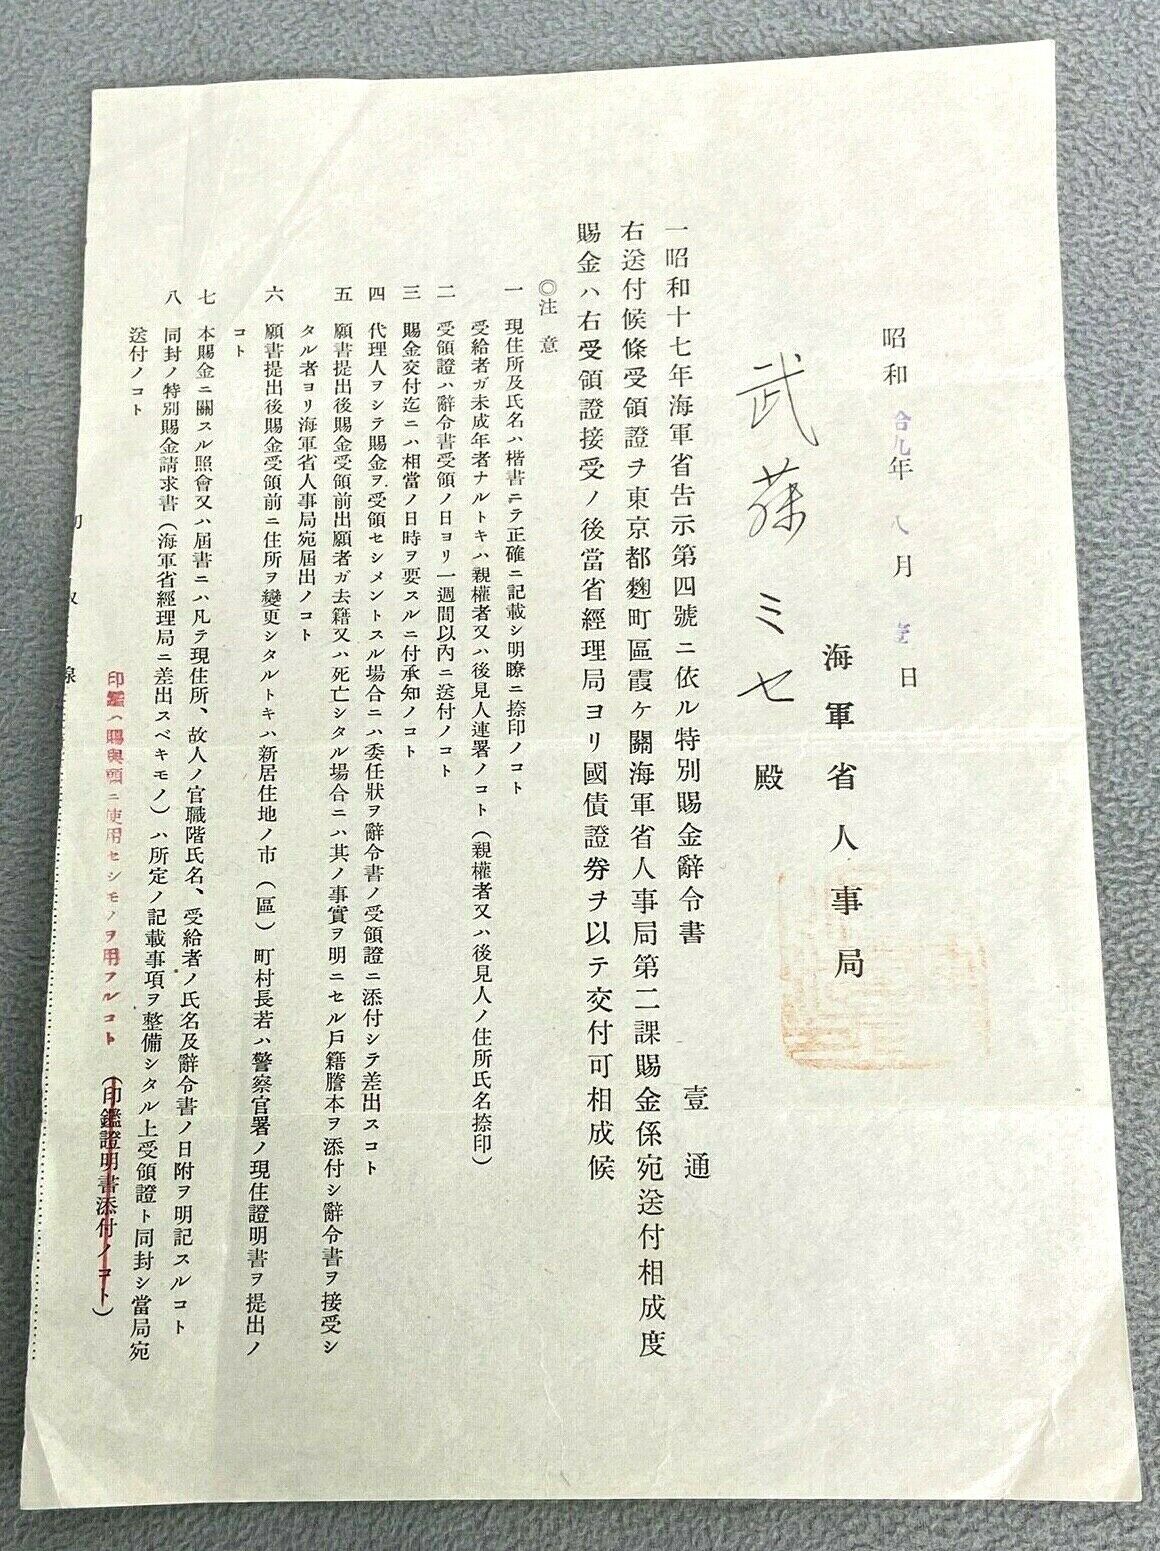 昭和拾九年八月壹日
海軍省人事局
武藤ミセ殿
一昭和十七年海軍省告示第四號ニ依ル特別賜金辭令書 壹通
右送付候條受領證ヲ東京都麴町區霞ケ關海軍省人事局第二課賜金係宛送付相成度
賜金ハ右受領證接受ノ後當省經理局ヨリ國債證券ヲ以テ交付可相成候
◎注意
一 現住所及氏名ハ楷書ニテ正確ニ記載シ明瞭ニ捺印ノコト
受給者ガ未成年者ナルトキハ親權者又ハ後見人連署ノコト(親權者又ハ後見人ノ住所氏名捺印)
二 受領證ハ辭令書受領ノ日ヨリ一週間以內ニ送付ノコト
三 賜金交付迄ニハ相當ノ日時ヲ要スルニ付承知ノコト
四 代理人ヲシテ賜金ヲ受領セシメントスル場合ニハ委任狀ヲ辭令書ノ受領證ニ添付シテ差出スコト
五 願書提出後賜金受領前出願者ガ去籍又ハ死亡シタル場合ニハ其ノ事實ヲ明ニセル戶籍謄本ヲ添付シ辭令書ヲ接受シ
タル者ヨリ海軍省人事局宛屆出ノコト
六 願書提出後賜金受領前ニ住所ヲ變更シタルトキハ新居住地ノ市(區)町村長若ハ警察官署ノ現住證明書ヲ提出ノ
コト
七 本賜金ニ關スル照會又ハ屆書ニハ凡テ現住所、故人ノ官職階氏名、受給者ノ氏名及辭令書ノ日附ヲ明記スルコト
八 同封ノ特別賜金請求書(海軍省經理局ニ差出スベキモノ)ハ所定ノ記載事項ヲ整備シタル上受領證ト同封シ當局宛
送付ノコト
印鑑ハ賜與願ニ使用セシモノヲ用フルコト(印鑑證明書添付ノコト)